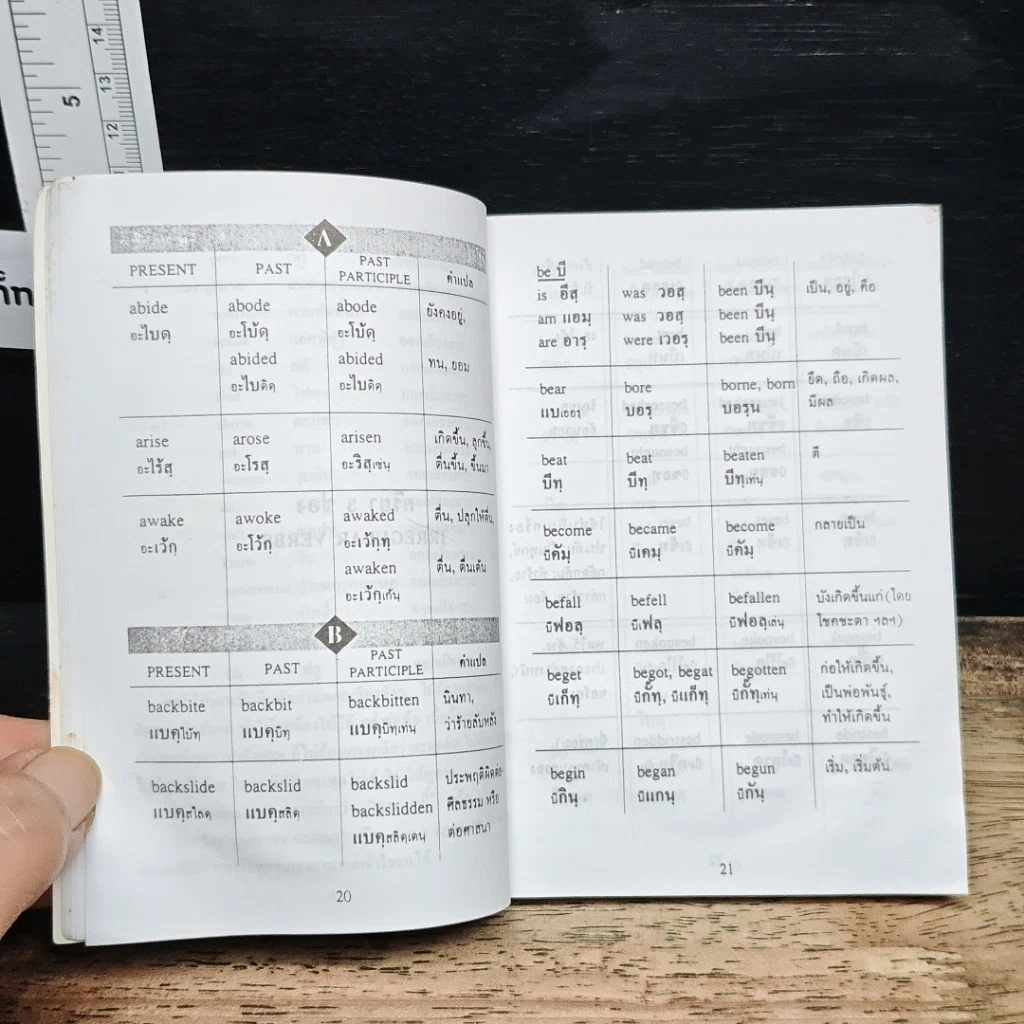 14
13
12
5
A
PRESENT PAST PAST PARTICIPLE คำแปล
abide abode abode ยังคงอยู่,
อะไบดฺ อะโบ้ดฺ อะโบ้ดฺ
abided abided ทน, ยอม
อะไบดิดฺ อะไบดิดฺ
arise arose arisen เกิดขึ้น, ลุกขึ้น,
อะไร้สฺ อะโรสฺ อะริสฺเซ่นฺ ตื่นขึ้น, ขึ้นมา
awake awoke awaked ตื่น, ปลุกให้ตื่น,
อะเว้กฺ อะโว้กฺ อะเว้กฺทฺ
awaken ตื่น, ตื่นเต้น
อะเว้กฺเก้นฺ
B
PRESENT PAST PAST PARTICIPLE คำแปล
backbite backbit backbitten นินทา,
แบคฺไบ้ทฺ แบคฺบิทฺ แบคฺบิทฺเท่นฺ ว่าร้ายลับหลัง
backslide backslid backslid ประพฤติผิดต่อ-
แบคฺสไลดฺ แบคฺสลิดฺ backslidden ศีลธรรม หรือ
แบคฺสลิดฺเดนฺ ต่อศาสนา
20
be บี
is อีสฺ was วอสฺ been บีนฺ เป็น, อยู่, คือ
am แอมฺ was วอสฺ been บีนฺ
are อารฺ were เวอรฺ been บีนฺ
bear bore borne, born ยึด, ถือ, เกิดผล,
แบเออรฺ บอรฺ บอรฺน มีผล
beat beat beaten ตี
บีทฺ บีทฺ บีทฺเท่นฺ
become became become กลายเป็น
บีคัมฺ บีเคมฺ บีคัมฺ
befall befell befallen บังเกิดขึ้นแก่(โดย
บีฟอลฺ บีเฟลฺ บีฟอลฺเล่นฺ โชคชะตา ฯลฯ)
beget begot, begat begotten ก่อให้เกิดขึ้น,
บีเก็ทฺ บีก๊อทฺ, บีแก็ทฺ บีก๊อทฺเท่นฺ เป็นพ่อพันธุ์,
ทำให้เกิดขึ้น
begin began begun เริ่ม, เริ่มต้น
บีกินฺ บีแกนฺ บีกันฺ
21